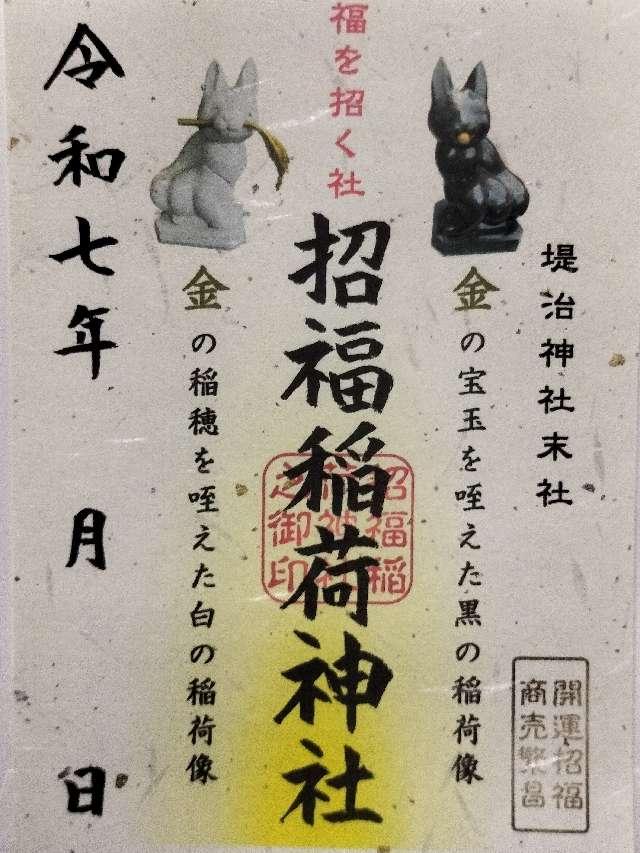 福を招く社
堤治神社末社
開運招福
商売繁昌
金の宝玉を咥えた黒の稲荷像
招福稲荷神社
招福稲
荷神社
之御印
金の稲穂を咥えた白の稲荷像
令和七年 月 日